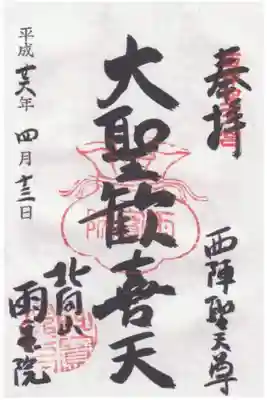 奉拝
西陣聖天尊
大聖歓喜天
北向山
雨宝院
平成廿六年四月十三日